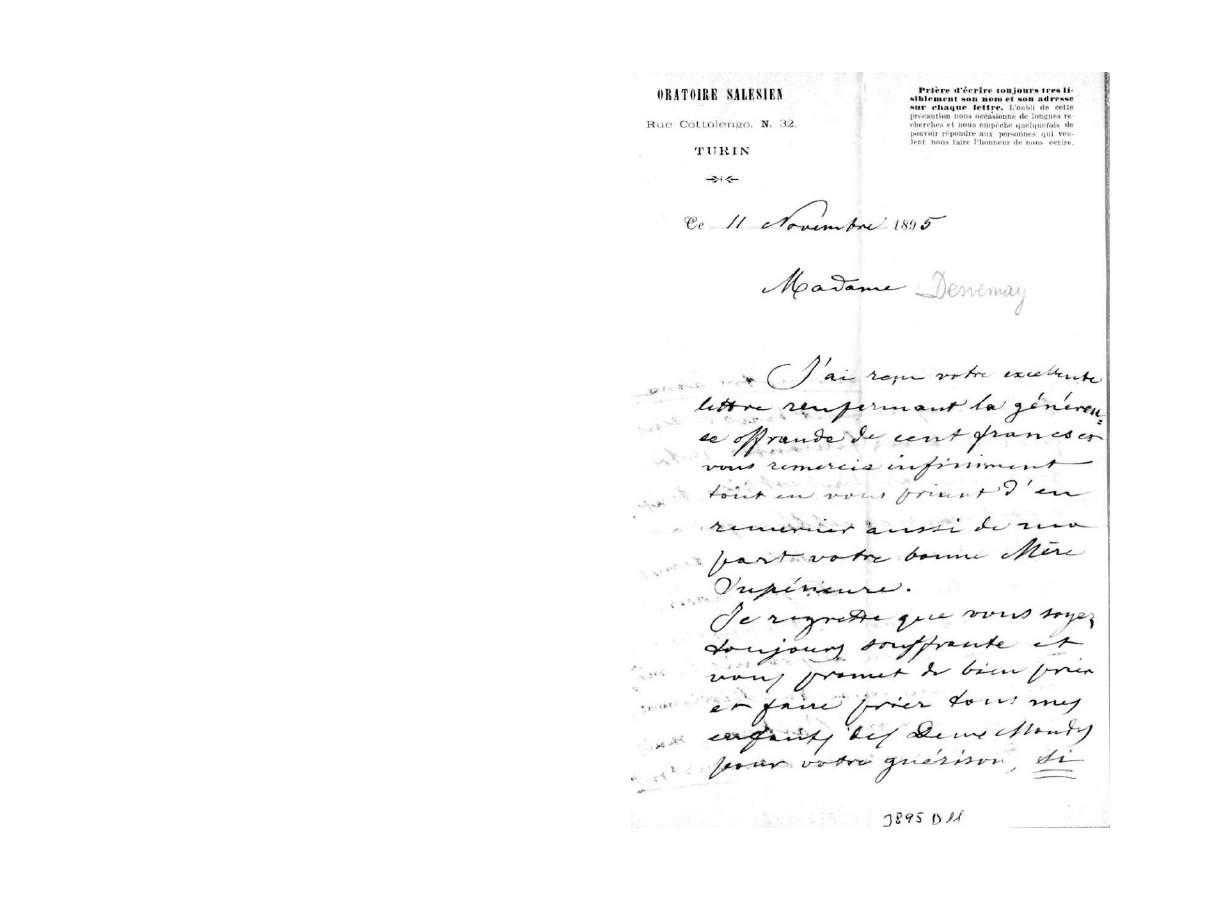 ORATOIRE SALESIEN
Rue Cottolengo, N. 32.
TURIN
Prière d'écrire toujours tres li-
siblement son nom et son adresse
sur chaque lettre. L'oubli de cette
précaution nous occasionne de longues re-
cherches et nous empêche quelquefois de
pouvoir répondre aux personnes qui veu-
lent nous faire l'honneur de nous écrire.
Ce 11 Novembre 1895
Madame Desvernay
J'ai reçu votre excellente
lettre renfermant la généreu=
se offrande de cent francs et
vous remercie infiniment
tout en vous priant d'en
remercier aussi de ma
part votre bonne Mère
Supérieure.
Je regrette que vous soyez
toujours souffrante et
vous promet de bien prier
et faire prier tous mes
enfants des Deux Mondes
pour votre guérison, si
1895 D 11